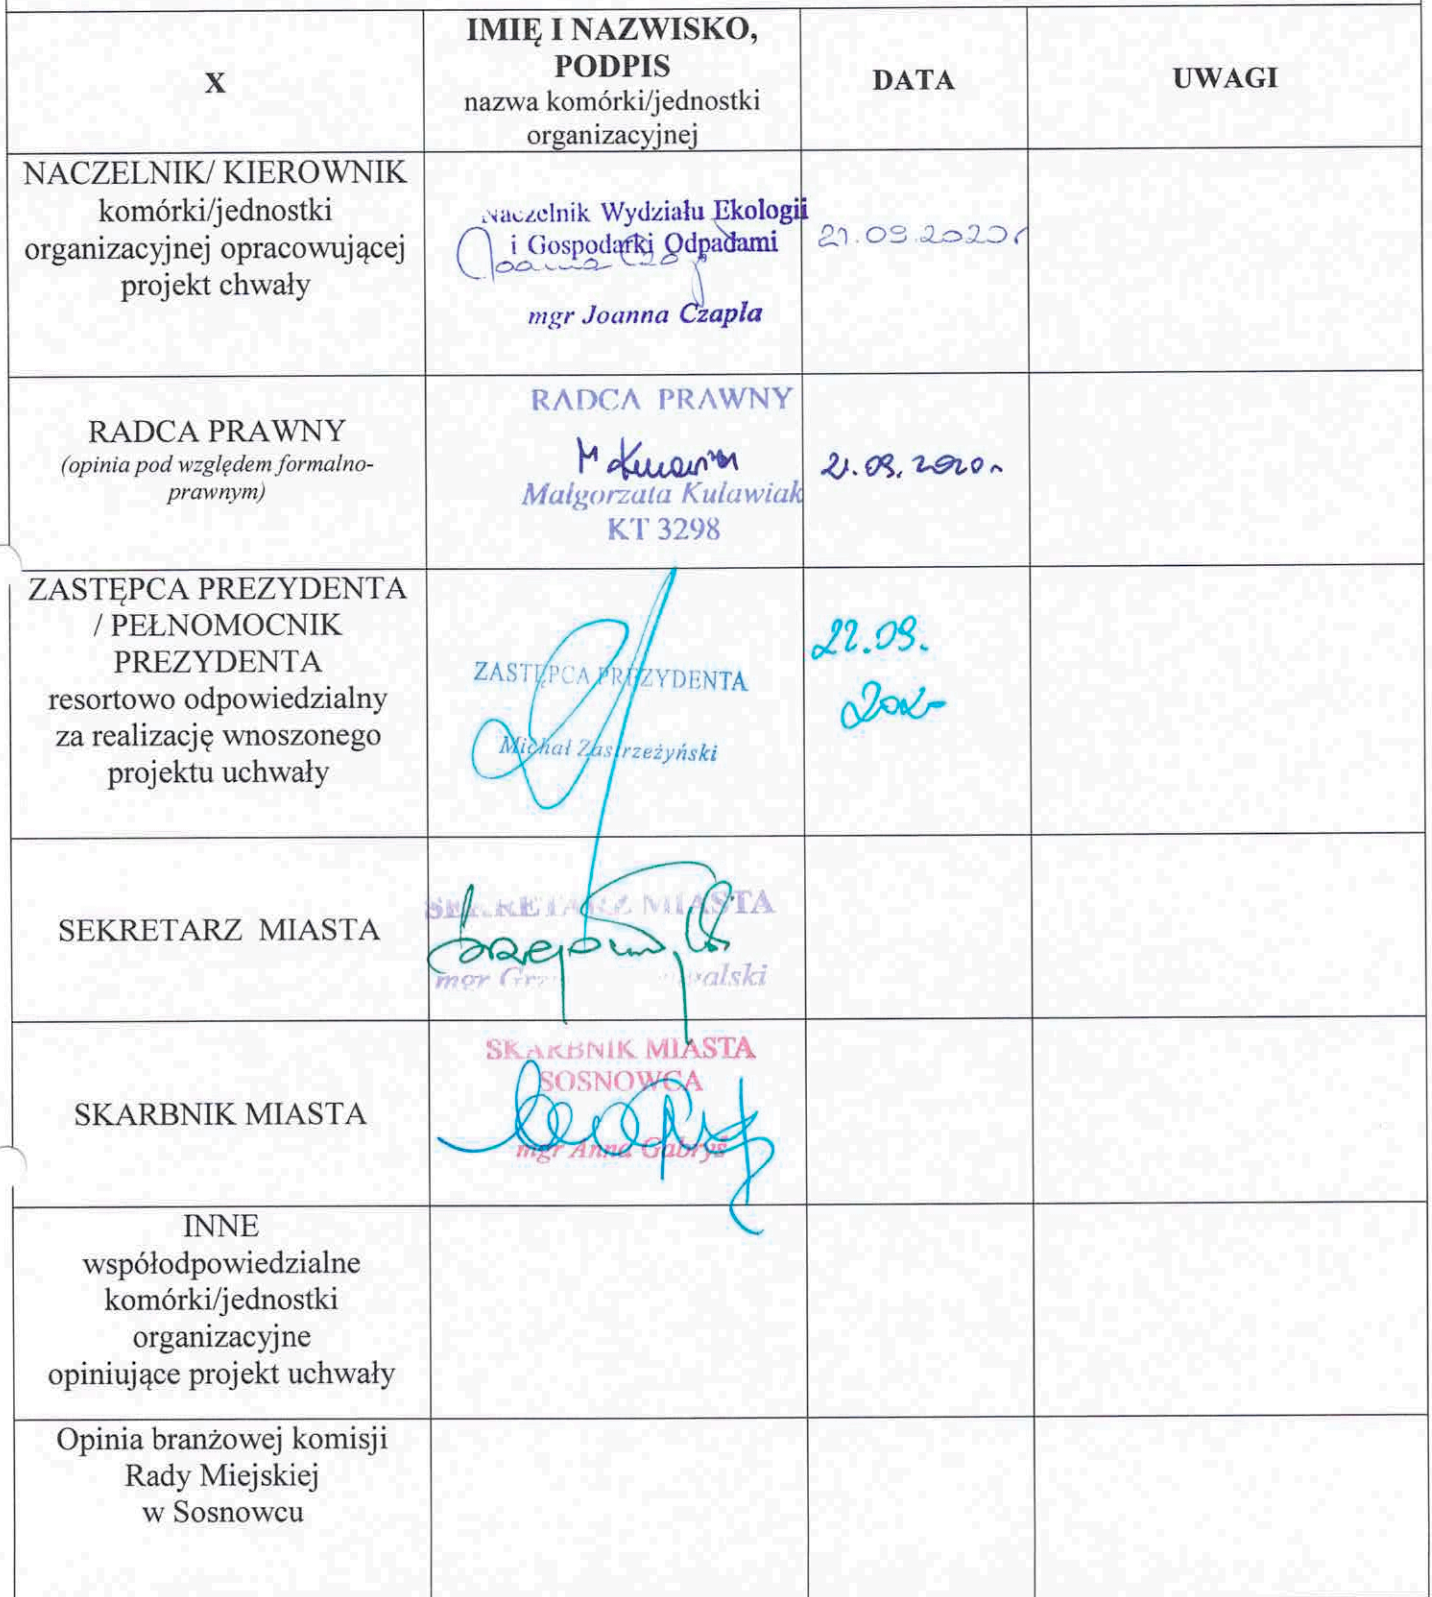 X
IMIĘ I NAZWISKO,
PODPIS
nazwa komórki/jednostki
organizacyjnej
DATA
UWAGI
NACZELNIK/ KIEROWNIK
komórki/jednostki
organizacyjnej opracowującej
projekt chwały
Naczelnik Wydziału Ekologii
i Gospodarki Odpadami
mgr Joanna Czapla
21.09.2020r
RADCA PRAWNY
(opinia pod względem formalno-
prawnym)
RADCA PRAWNY
Małgorzata Kulawiak
KT 3298
21.09.2020r
ZASTĘPCA PREZYDENTA
/ PEŁNOMOCNIK
PREZYDENTA
resortowo odpowiedzialny
za realizację wnoszonego
projektu uchwały
ZASTĘPCA PREZYDENTA
Michał Zastrzeżyński
22.09.
SEKRETARZ MIASTA
SEKRETARZ MIASTA
mgr
SKARBNIK MIASTA
SKARBNIK MIASTA
SOSNOWCA
mgr Anna Gabryś
INNE
współodpowiedzialne
komórki/jednostki
organizacyjne
opiniujące projekt uchwały
Opinia branżowej komisji
Rady Miejskiej
w Sosnowcu